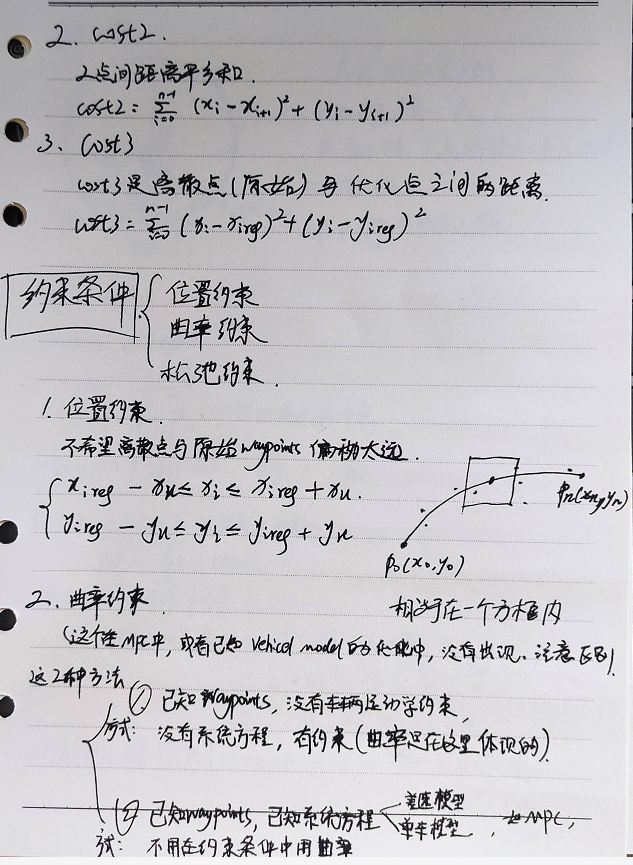 2. cost2.
2点间距离平方和.
cost2 = \sum_{i=0}^{n-1} (x_i - x_{i+1})^2 + (y_i - y_{i+1})^2
3. Cost3
cost3是离散点(原始)与优化点之间的距离.
cost3 = \sum_{i=0}^{n-1} (x_i - x_{ireg})^2 + (y_i - y_{ireg})^2
约束条件
位置约束
曲率约束
松弛约束.
1. 位置约束.
不希望离散点与原始waypoints偏移太远.
x_{ireg} - x_u ≤ x_i ≤ x_{ireg} + x_u.
y_{ireg} - y_u ≤ y_i ≤ y_{ireg} + y_u
P_n(x_n, y_n)
P_0(x_0, y_0)
相当于在一个方框内
2. 曲率约束.
(这个在MPC中, 或者已知 vehicel model的优化中, 没有出现. 注意区别).
这2种方法
① 已知waypoints, 没有车辆运动学约束,
方式: 没有系统方程, 有约束(曲率是在这里体现的).
② 已知waypoints, 已知系统方程
差速模型
单车模型
, 如MPC,
方式: 不用在约束条件中用曲率